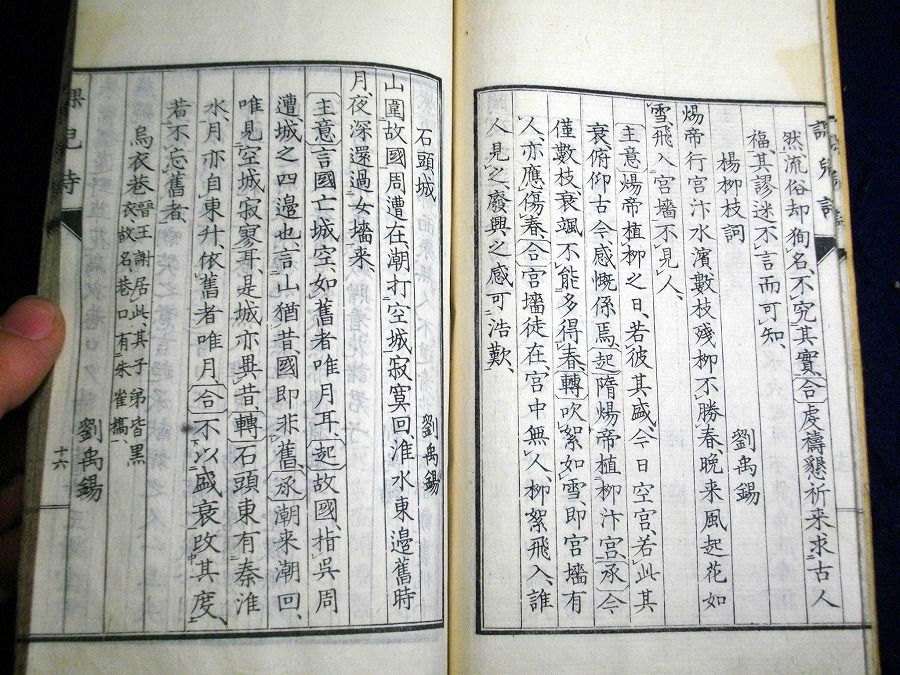 然流俗却狥名、不究其實、合虔禱懇祈来求古人
福、其謬迷不言而可知、
楊柳枝詞
劉禹錫
煬帝行宮汴水濱數枝殘柳不勝春晩来風起花如
雪飛入宮墻不見人、
主意煬帝植柳之日、若彼其盛、今日空宮若此其
衰、俯仰古今感慨係焉、起隋煬帝植柳汴宮、承今、
僅數枝衰颯、不能多得春、轉吹絮如雪、即宮墻有
人、亦應傷春、合宮墻徒在、宮中無人、柳絮飛入、誰
人見之、廢興之感可浩歎、
石頭城
劉禹錫
山圍故國周遭在、潮打空城寂寞回、淮水東邊舊時
月、夜深還過女墻来、
主意言國亡城空、如舊者唯月耳、起故國、指吳周
遭、城之四邊也、言山猶昔、國即非舊、承潮来潮回、
唯見空城寂寥耳、是城亦異昔、轉石頭東有秦淮
水、月亦自東升、依舊者唯月、合不以盛衰改其度、
若不忘舊者、
烏衣巷
晋王謝居此其子弟皆黒
衣故名巷口有朱雀橋、
劉禹錫
十六